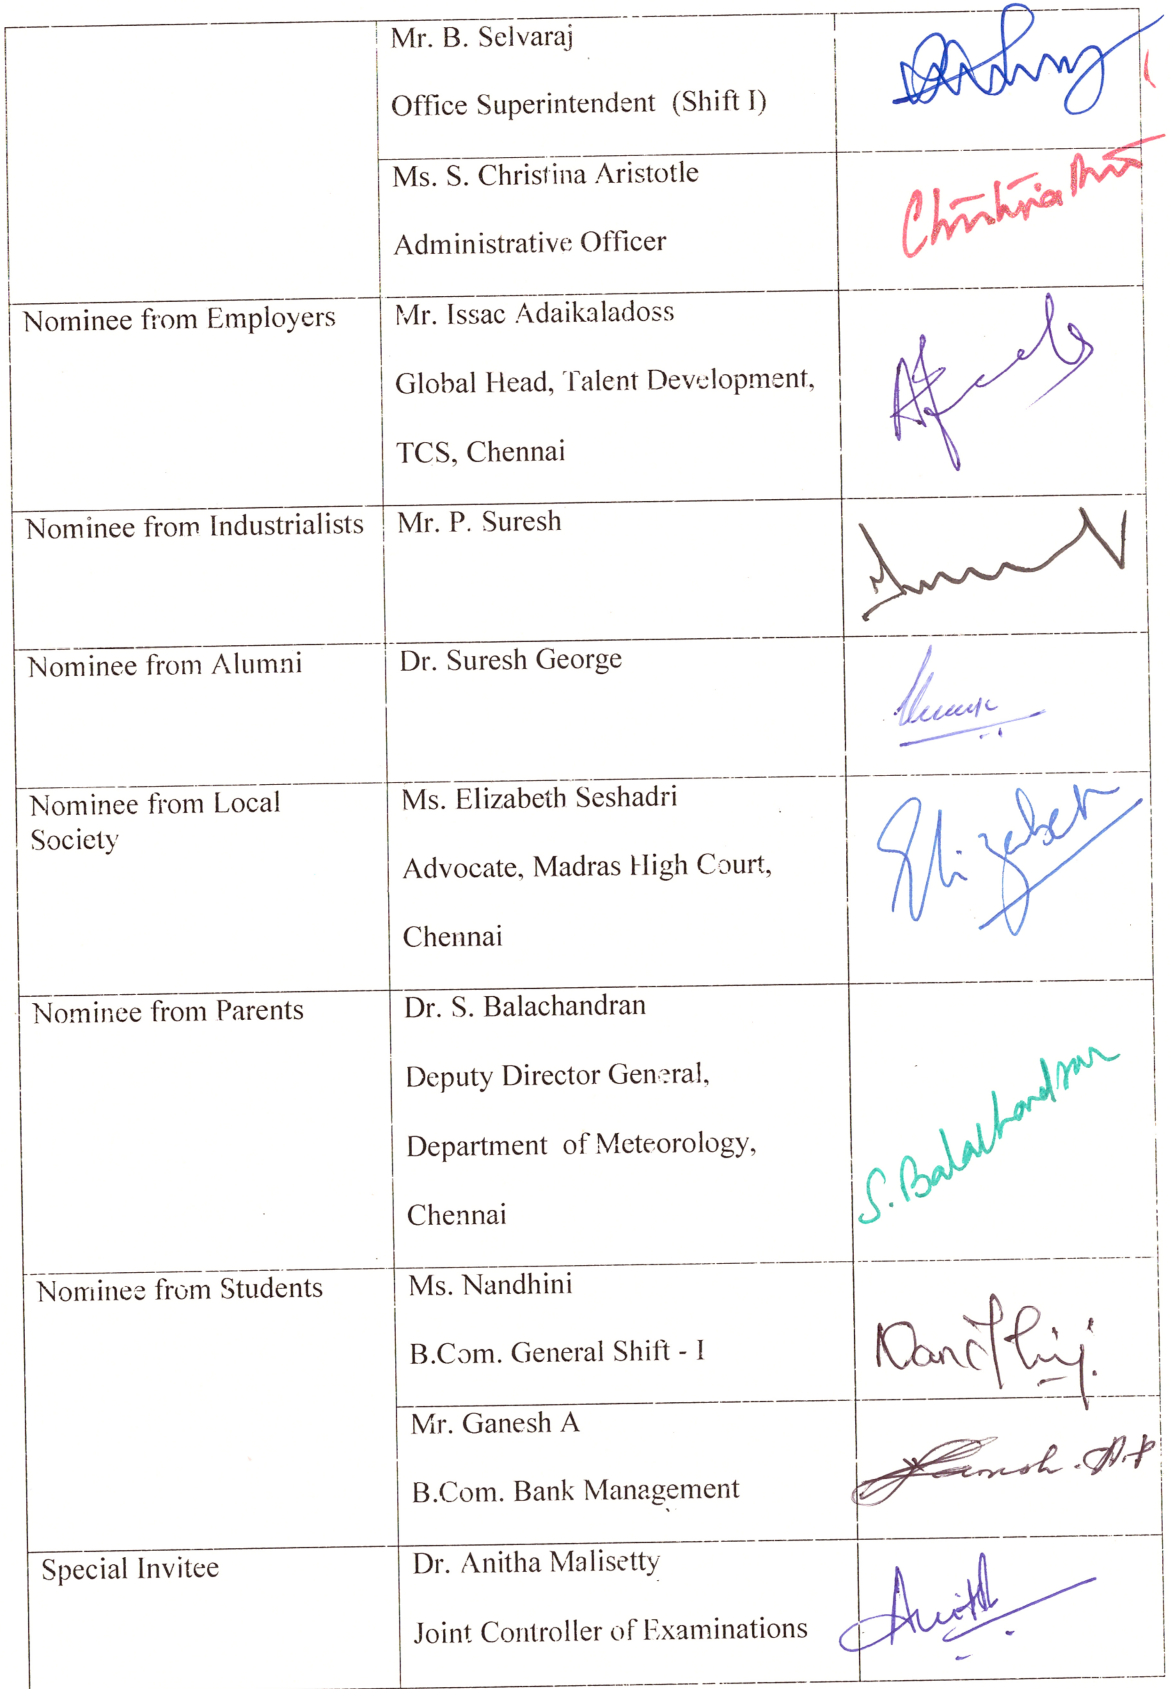 Mr. B. Selvaraj
Office Superintendent (Shift I)
Ms. S. Christina Aristotle
Administrative Officer
Christina
Nominee from Employers
Mr. Issac Adaikaladoss
Global Head, Talent Development,
TCS, Chennai
Nominee from Industrialists
Mr. P. Suresh
Nominee from Alumni
Dr. Suresh George
Nominee from Local
Society
Ms. Elizabeth Seshadri
Advocate, Madras High Court,
Chennai
Elizabeth
Nominee from Parents
Dr. S. Balachandran
Deputy Director General,
Department of Meteorology,
Chennai
S. Balachandran
Nominee from Students
Ms. Nandhini
B.Com. General Shift - I
Mr. Ganesh A
B.Com. Bank Management
Special Invitee
Dr. Anitha Malisetty
Joint Controller of Examinations